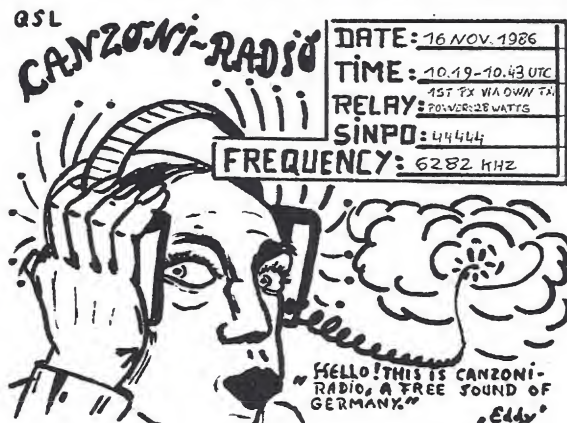 QSL
CANZONI-RADIO
DATE: 16 NOV. 1986
TIME: 10.19-10.43 UTC
RELAY: 1ST PX VIA OWN TX,
POWER: 28 WATTS
SINPO: 44444
FREQUENCY: 6282 KHZ
„HELLO! THIS IS CANZONI-
RADIO, A FREE SOUND OF
GERMANY."
„Eddy"